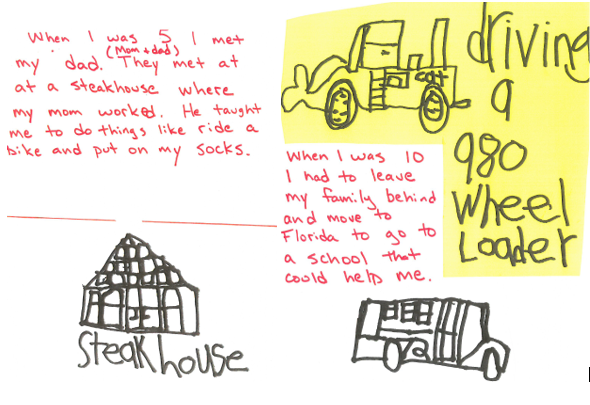 When I was 5 I met
(Mom + dad)
my dad. They met at
at a steakhouse where
my mom worked. He taught
me to do things like ride a
bike and put on my socks.
Steakhouse
driving
a
980
Wheel
Loader
cat
When I was 10
I had to leave
my family behind
and move to
Florida to go to
a school that
could help me.